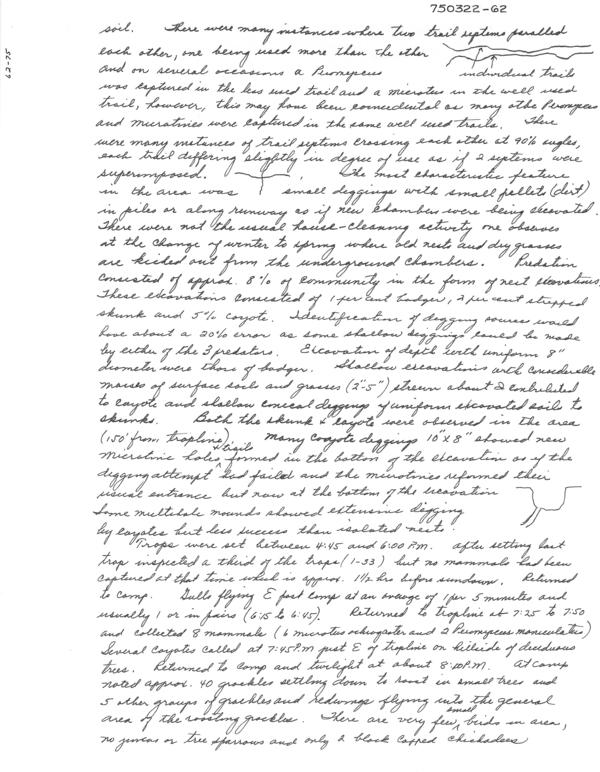 750322-62
62-75
soil. There were many instances where two trail septems paralled
each other, one being used more than the other
and on several occasions a Peromyscus individual trails
was captured in the less used trail and a microtus in the well used
trail, however, this may have been coincidental as many othe Peromyscus
and microtines were captured in the same well used trails. There
were many instances of trail septems crossing each other at 90% angles,
each trail differing slightly in degree of use as if 2 septems were
superimposed. The most characteristic feature
in the area was small deggings with small pellets (dirt)
in piles or along runway as if new chambers were being excavated.
There were not the usual house-cleaning activity one observes
at the change of winter to spring where old nests and dry grasses
are kicked out from the underground chambers. Predation
consisted of approx. 8% of community in the form of nest excavations.
These excavations consisted of 1 per cent badger, 2 per cent stripped
skunk and 5% coyote. Identification of degging source would
have about a 20% error as some shallow deggings could be made
by either of the 3 predators. Excavation of depth with uniform 8"
diameter were those of badger. Shallow excavations with considerable
masses of surface soils and grasses (2"-5") strewn about I contributed
to coyote and shallow conical deggings of uniform excavated soils to
skunks. Both the skunk & coyote were observed in the area
(150' from trapline). Many coyote deggings 10"x8" showed new
microtine holes & trails formed in the bottom of the excavation as if the
digging attempt had failed and the microtines reformed their
usual entrance but now at the bottom of the excavation
Some multihole mounds showed extensive digging
by coyotes but less success than isolated nests.
Traps were set between 4:45 and 6:00 P.M. After setting last
trap inspected a third of the traps (1-33) but no mammals had been
captured at that time which is approx. 1½ hrs before sundown. Returned
to camp. Gulls flying E past camp at an average of 1 per 5 minutes and
usually 1 or in pairs (6:15 to 6:45). Returned to trapline at 7:25 to 7:50
and collected 8 mammals (6 microtus ochrogaster and 2 Peromyscus maniculatus)
Several coyotes called at 7:45 P.M just E of trapline on hillside of deciduous
trees. Returned to camp and twilight at about 8:10 P.M. At camp
noted approx. 40 grackles settling down to roost in small trees and
5 other groups of grackles and redwings flying into the general
area of the roosting grackles. There are very few small birds in area,
no juncos or tree sparrows and only 2 black capped chickadees